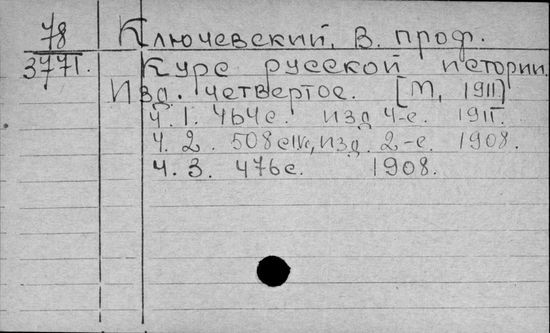 78 Ключевский, В. проф.
3771. Курс русской истории.
Изд. четвертое. [М, 1911]
Ч. 1. 464с. изд 4-е. 1911.
Ч. 2. 508с, изд. 2-е. 1908.
Ч. 3. 476с. 1908.